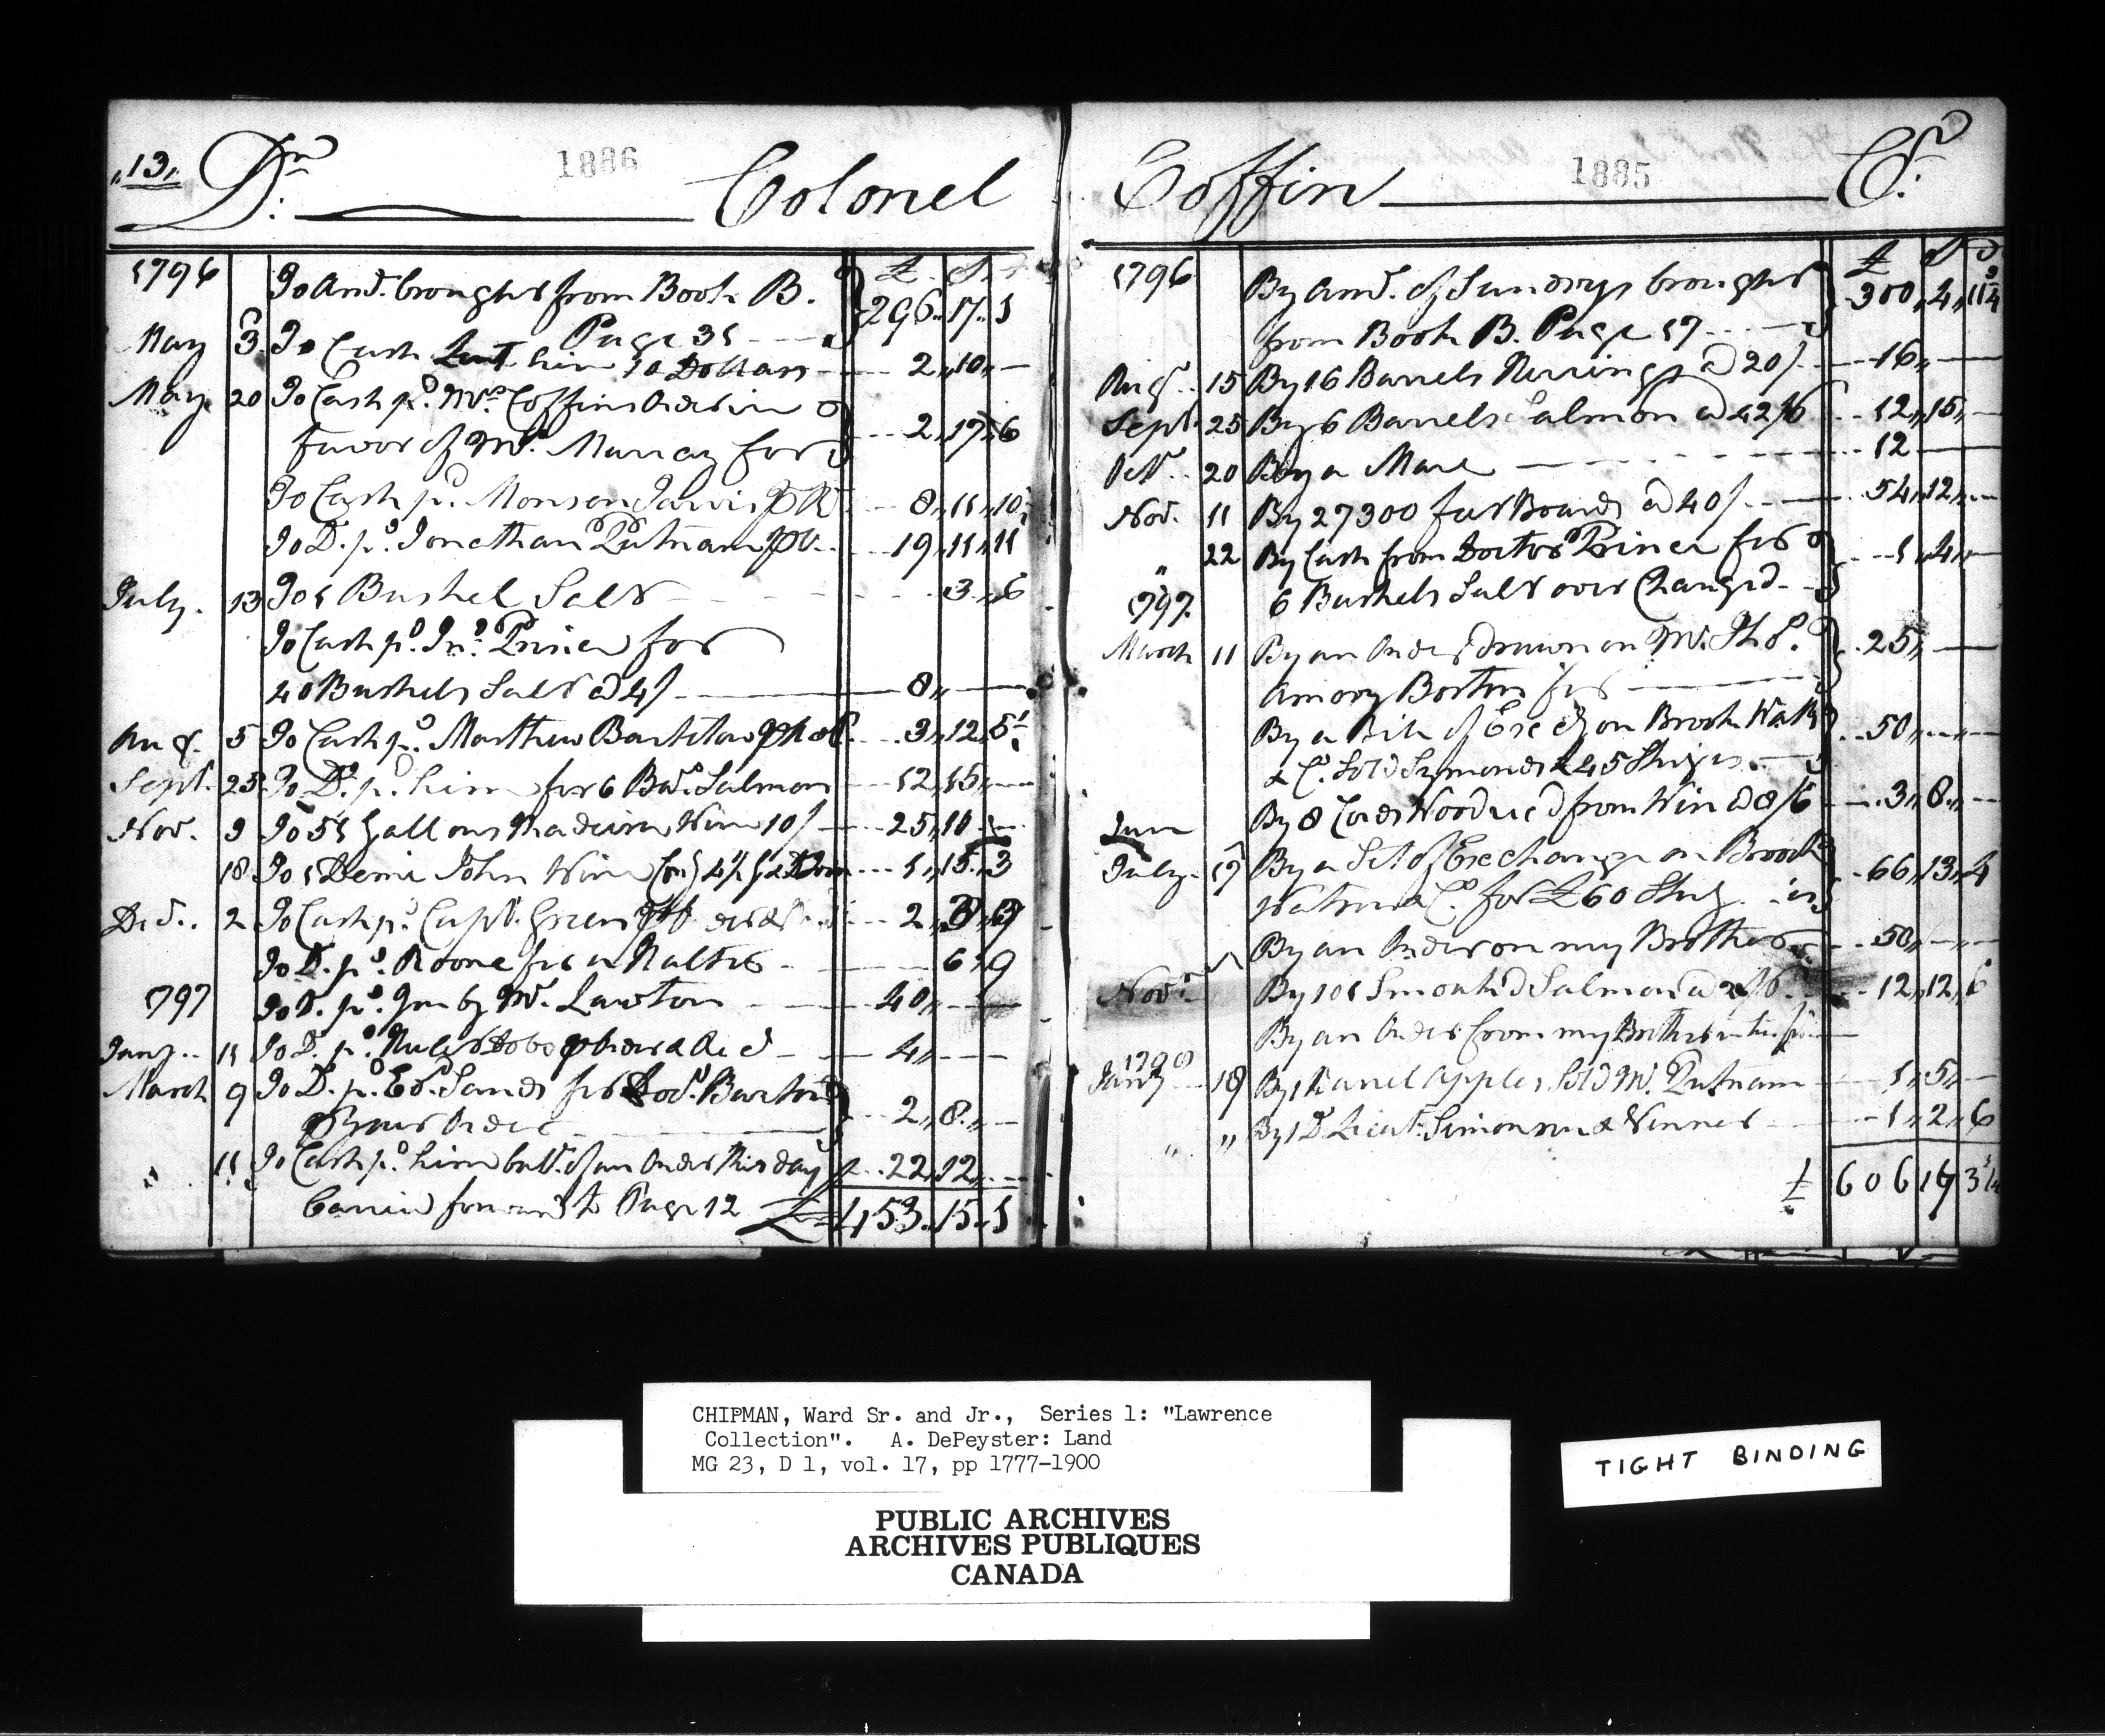 „13„ Dr. Colonel
1886
£ S
1796 To Amt. brought from Book B.
Page 31 296„17„1
May 3 To Cash Lent him 10 Dollars 2„10„—
May 20 To Cash pd. Mrs. Coffins Order in
favor of Mr. Murray for 2„17„6
To Cash pd. Monson Jarvis 8„11„10
To Do. pd. Jonathan Putnam 19„11„11
July 13 To 1 Bushel Salt 3„6
To Cash pd. Jno. Prince for
40 Bushels Salt @ 4/ 8„—
Augt. 5 To Cash pd. Matthew 3„12„5
Sept. 25 To Do. pd. him for 6 Bars. Salmon 12„15„—
Nov. 9 To 51 Gallons Madeira Wine 10/ 25„10„—
18 To 1 Demi John Wine 1„15„3
Decr. 2 To Cash pd. Capt. Green 2„
To Do. pd. Roone for a Halter 6„9
1797 To Do. pd. you by Mr. Lawton 40„—
Jany. 11 To Do. pd. 4„—
March 9 To Do. pd. Ed. Sands for Doct. Barton
pr your Order 2„8„—
11 To Cash pd. him balle. of an Order this day 22„12„—
Carried forward to Page 12 £453„15„1
Coffin Cr.
1885
£ S D
1796 By Amt. of Sundrys brought
from Book B. Page 17 300„4„11¾
Augt. 15 By 16 Barrels Herrings @ 20/ 16„—
Sept. 25 By 6 Barrels Salmon @ 42/6 12„15„—
Oct. 20 By a Mare 12
Nov. 11 By 27300 feet Boards @ 40/ 54„12„—
„ 22 By Cash from Doctor Prince for
6 Bushels Salt over Charged 1„4„—
1797.
March 11 By an Order drawn on Mr. Ths.
Amory Boston for 25„—
By a Bill of Exc. on Brook Watson
& Co. Sold Symonds £45 Sterg. is 50„—„—
By 8 Cords Wood recd from Him @ 8/6 3„8„—
June
July 17 By a Set of Exchange on Brook
Watson & Co. for £60 Sterg. is 66„13„4
By an Order on my Brother 50„—„—
Novr. By 101 Smoak'd Salmon @ 2/6 12„12„6
By an Order from my Brother
1798
Jany 18 By 1 Barrel Apples Sold Mr. Putnam 1„5„—
„ „ By 1 Do. Lieut. Simonson & Vinner 1„2„6
£ 606 17 3¼
CHIPMAN, Ward Sr. and Jr., Series 1: "Lawrence
Collection". A. DePeyster: Land
MG 23, D 1, vol. 17, pp 1777-1900
PUBLIC ARCHIVES
ARCHIVES PUBLIQUES
CANADA
TIGHT BINDING